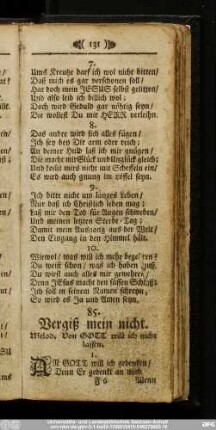 ( 131 )
7.
Ums Kreutze darf ich wol nicht bitten/
Daß mich es gar verschonen soll/
Hat doch mein JESUS selbst gelitten/
Und also leid ich billich wol;
Doch wird Gedult gar nöhtig seyn/
Die wollest Du mir HERR verleihn.
8.
Das ander wird sich alles fügen/
Ich sey bey Dir arm oder reich;
An deiner Huld laß ich mir gnügen/
Die macht mir Glück und Unglück gleich;
Und kömt mirs nicht mit Scheffeln ein/
Es wird auch gnung im Löffel seyn.
9.
Ich bitte nicht um langes Leben/
Nur daß ich Christlich leben mag;
Laß mir den Tod für Augen schweben/
Und meinen letzten Sterbe-Tag;
Damit mein Ausgang aus der Welt/
Den Eingang in den Himmel hält.
10.
Wiewol/ was will ich mehr begehren?
Du weist schon/ was ich haben muß.
Du wirst auch alles mir gewähren/
Denn JEsus macht den süssen Schluß:
Ich soll in seinem Namen schreyn/
So wird es Ja und Amen seyn.
85.
Vergiß mein nicht.
Melod. Von GOTT will ich nicht
lassen.
1.
AN GOTT will ich gedencken/
Denn Er gedenkt an mich
Wenn